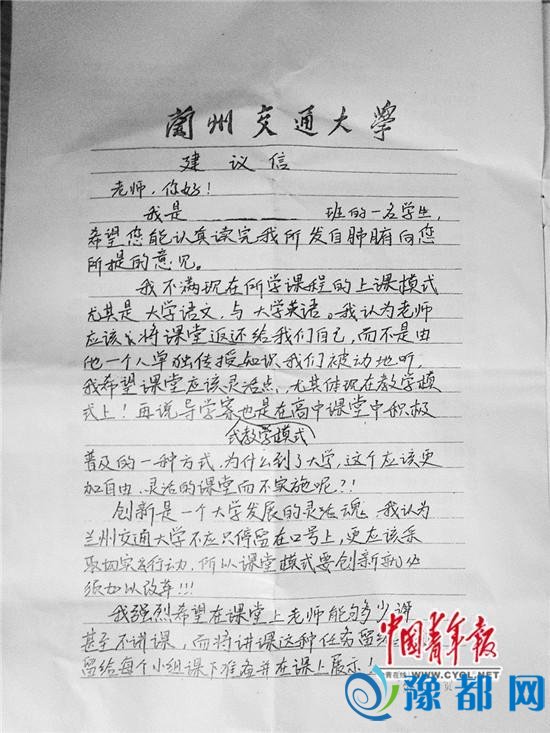 蘭州交通大學
建议信
老师,你好!
我是 班的一名学生,
希望您能认真读完我所发自肺腑向您
所提的意见。
我不满现在所学课程的上课模式
尤其是大学语文,与大学英语。我认为老师
应该将课堂返还给我们自己,而不是由
他一个人单独传授知识我们被动地听,
我希望课堂应该灵活点,尤其体现在教学模
式上!再说导学案也是在高中课堂中积极
式教学模式
普及的一种方式,为什么到了大学,这个应该更
加自由、灵活的课堂而不实施呢?!
创新是一个大学发展的灵活魂,我认为
兰州交通大学不应只停留在口号上,更应该采
取切实行动,所以课堂模式要创新就必
须加以改革!!!
我强烈希望在课堂上老师能够多少讲
甚至不讲课,而将讲课这种任务留给
留给每个小组课下准备并在课上展示
中国青年报
青在线 WWW.CYOL.NET
豫都网